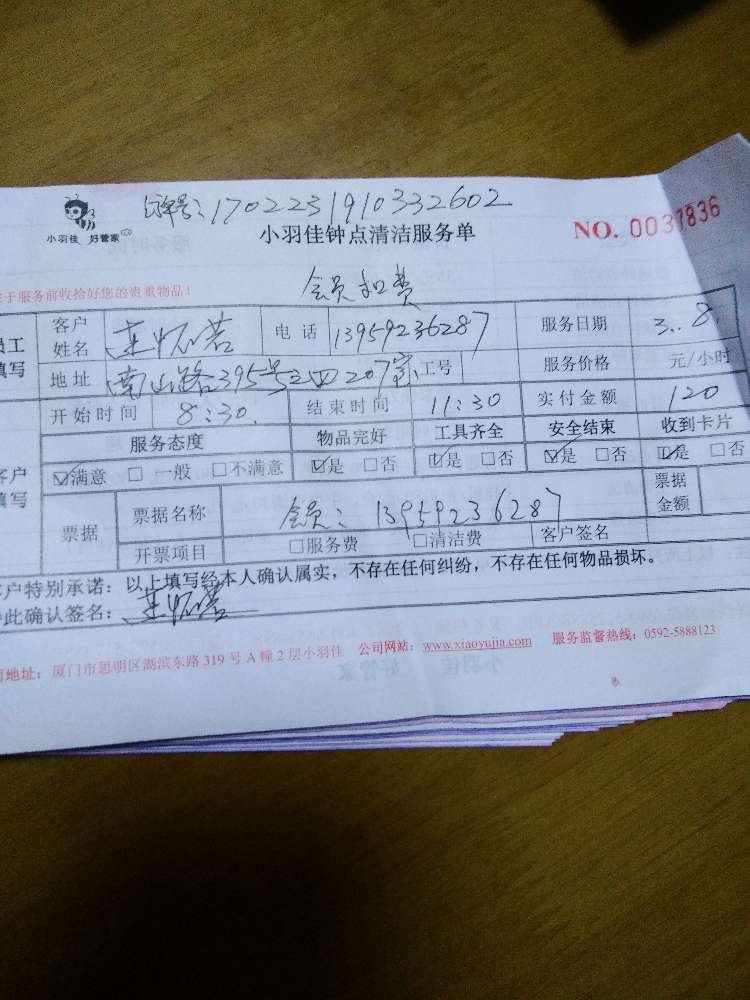 订单号：1702231910332602
小羽佳 好管家
小羽佳钟点清洁服务单
NO. 0037836
于服务前收拾好您的贵重物品！
会员扣费
员工填写 客户姓名 电话 13959236287 服务日期 3..8.
地址 南山路395号之四207室 工号 服务价格 元/小时
开始时间 8:30. 结束时间 11:30 实付金额 120
客户填写 服务态度 物品完好 工具齐全 安全结束 收到卡片
☑满意 □一般 □不满意 ☑是 □否 ☑是 □否 ☑是 □否 ☑是 □否
票据 票据名称 会员：13959236287 票据金额
开票项目 □服务费 □清洁费 客户签名
客户特别承诺：以上填写经本人确认属实，不存在任何纠纷，不存在任何物品损坏。
此确认签名：
地址：厦门市思明区湖滨东路319号A幢2层小羽佳 公司网站：www.xiaoyujia.com 服务监督热线：0592-5888123